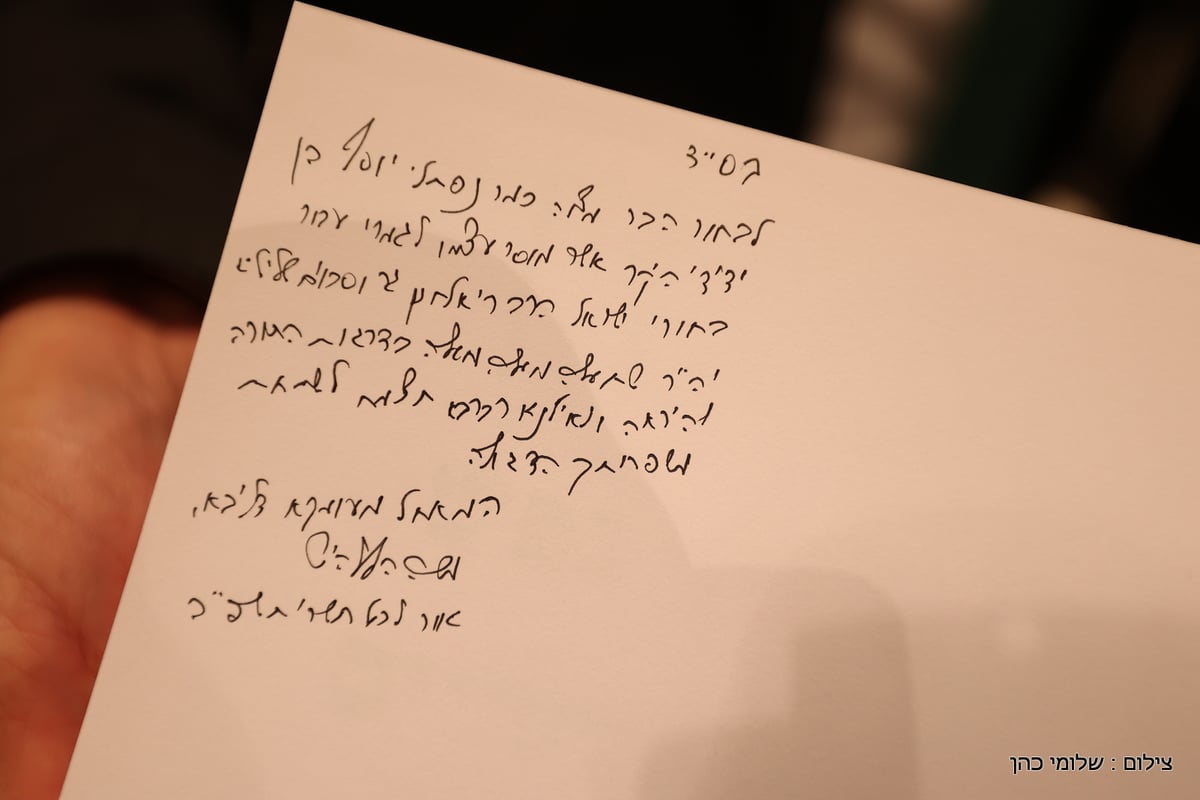 בס"ד
לבחור הבר מצוה כמר נפתלי יוסף בן
ידידי היקר אשר מוסר עצמו לגמרי עבור
בחורי ישראל הרב ריאלחץ
יה"ר שתעלה מעלה מעלה בדרגות התורה
והיראה ונאילנא רברבא תצמח לשמחת
משפחתך הדגולה
המאחל מעומקא דליבא,
משה
אור לכט תשרי תשפ"ב
צילום : שלומי כהן